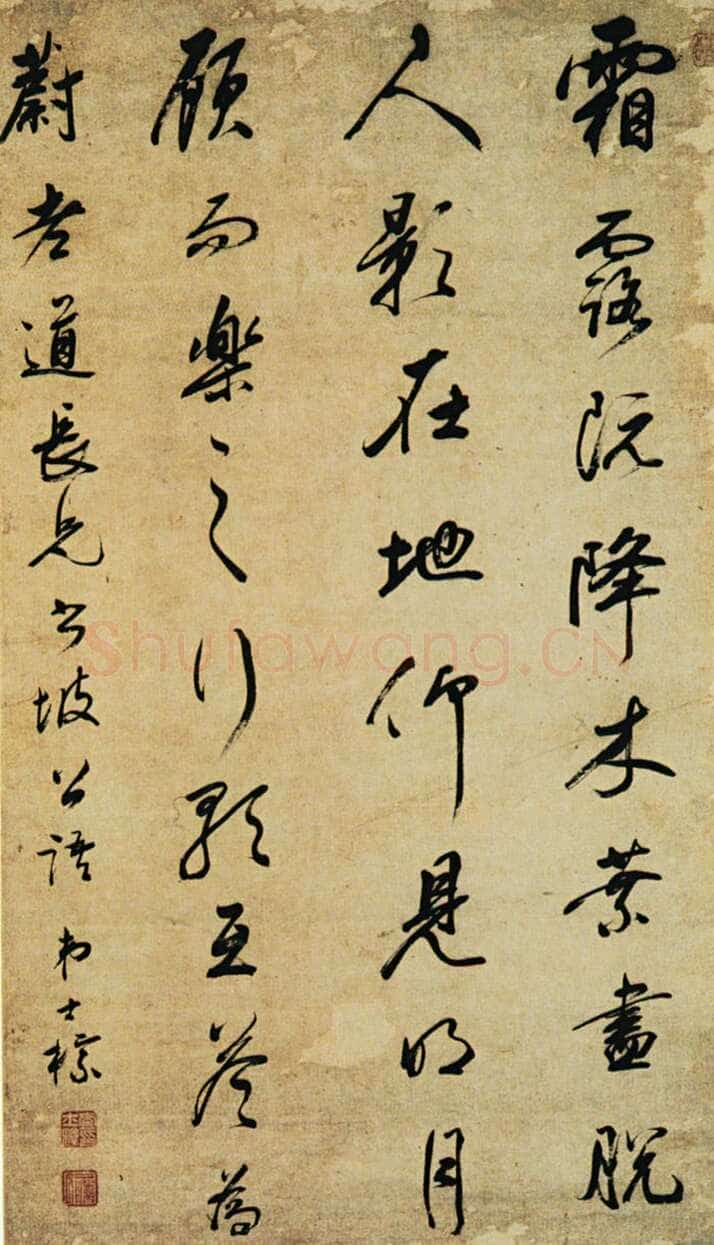 霜露既降木葉盡脫
人影在地仰見明月
顧而樂之行歌互答為
蔚老道長兄書坡公語 弟士標
Shufawang.CN